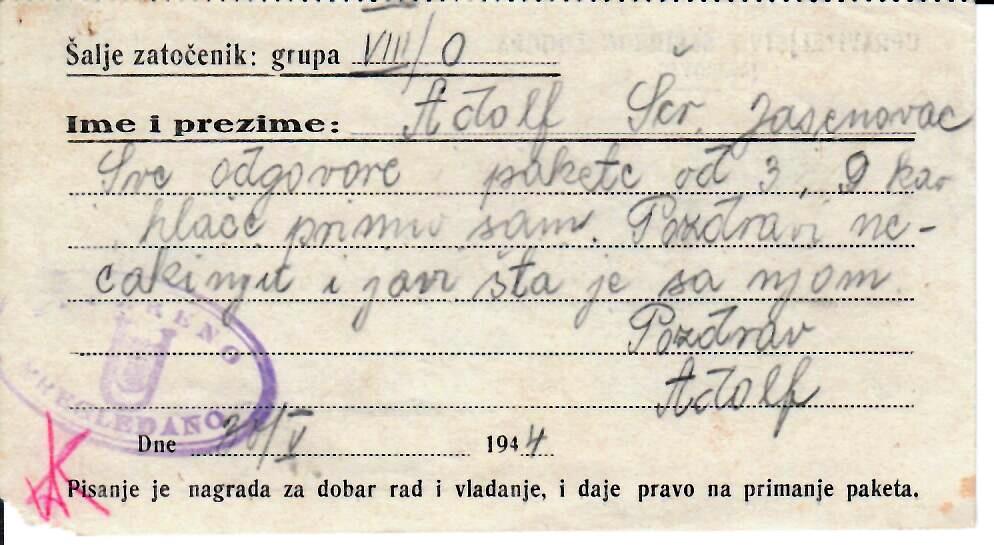 Šalje zatočenik: grupa VIII/0
Ime i prezime: Adolf Šer. Jasenovac
Sve odgovore i pakete od 3, 9 kao
i hlače primio sam. Pozdravi ne-
čakinju i javi šta je sa njom.
Pozdrav
Adolf
PREGLEDANO
Dne /V 1944
Pisanje je nagrada za dobar rad i vladanje, i daje pravo na primanje paketa.